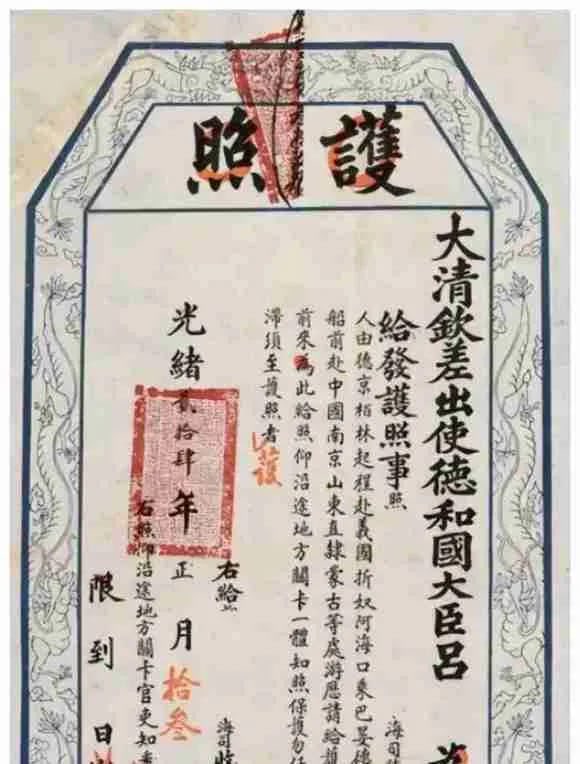 護照
大清欽差出使德和國大臣呂 為
給發護照事照
海司
人由德京栢林起程赴義國折奴阿海口乗巴晏德
船前赴中國南京山東直隸蒙古等處游歷請給護
前来為此給照仰沿途地方關卡一體知照保護勿任
滯須至護照者
護
右給
海司
光緒貳拾肆年正月拾叁
右照仰沿途地方關卡官吏知悉
限到日